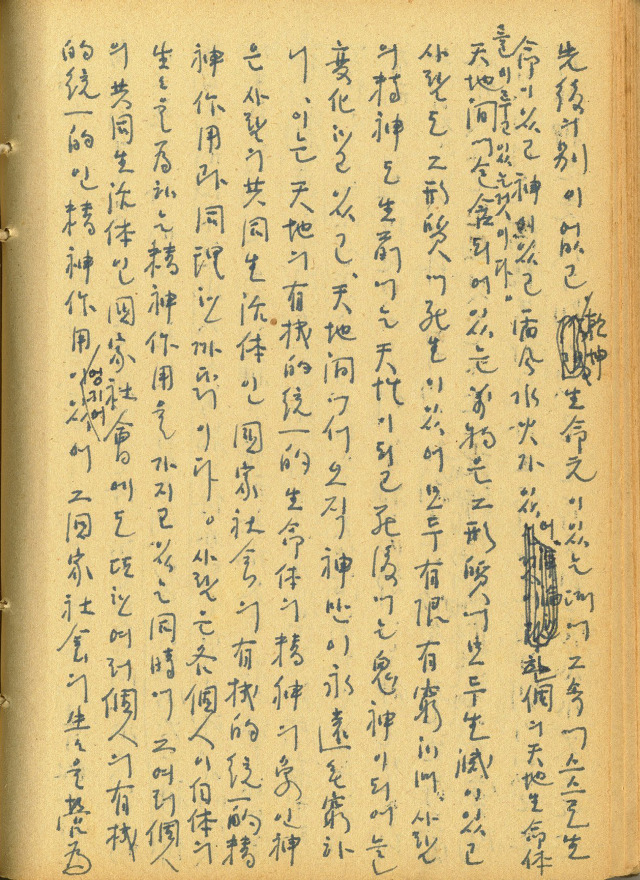 先後의別이없고 乾坤 生命元이있는데에그속에스스로生
命이있고神이있고雷風水火가있어 한個의天地生命体
를이루고있는것이다。
天地間에包含되어있는萬物은그形質에모두生滅이있고
사람도그形質에死生이있어모두有限有窮하며사람
의精神도生前에는天性이되고死後에는鬼神이되어늘
變化하고있고、天地間에서오직神만이永遠無窮하
니、이는天地의有機的統一的生命体의精神의象인神
은사람의共同生活体인國家社會의有機的統一的精
神作用과同理인까닭이다。사람은各個人이自体의
生生을爲하는精神作用을가지고있는同時에그여러個人
의共同生活体인國家社會에도또한여러個人의有機
的統一的인精神作用이 그國家社會의生生을營爲